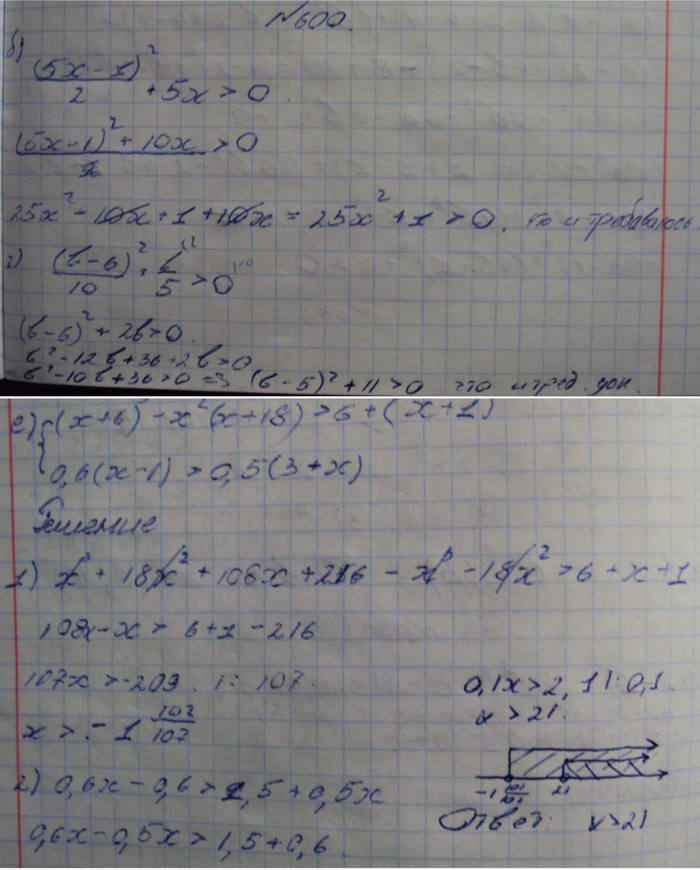 №600.
б)
(5x-1)²/2 + 5x > 0.
(5x-1)² + 10x > 0
2
25x² - 10x + 1 + 10x = 25x² + 1 > 0.
(b-6)²/10 + b/5 > 0
(b-6)² + 2b > 0.
b² - 12b + 36 + 2b > 0
b² - 10b + 36 > 0 => (b-5)² + 11 > 0
е) { (x+6)³ - x²(x+18) > 6 + (x+1)
0,6(x-1) > 0,5(3+x)
Решение
1) x³ + 18x² + 106x + 216 - x³ - 18x² > 6 + x + 1
108x - x > 6 + 1 - 216
107x > -209. |: 107.
x > - 1 102/107
2) 0,6x - 0,6 > 1,5 + 0,5x
0,6x - 0,5x > 1,5 + 0,6.
0,1x > 2,1 |: 0,1.
x > 21.
-1 102/107 21
Ответ: x > 21